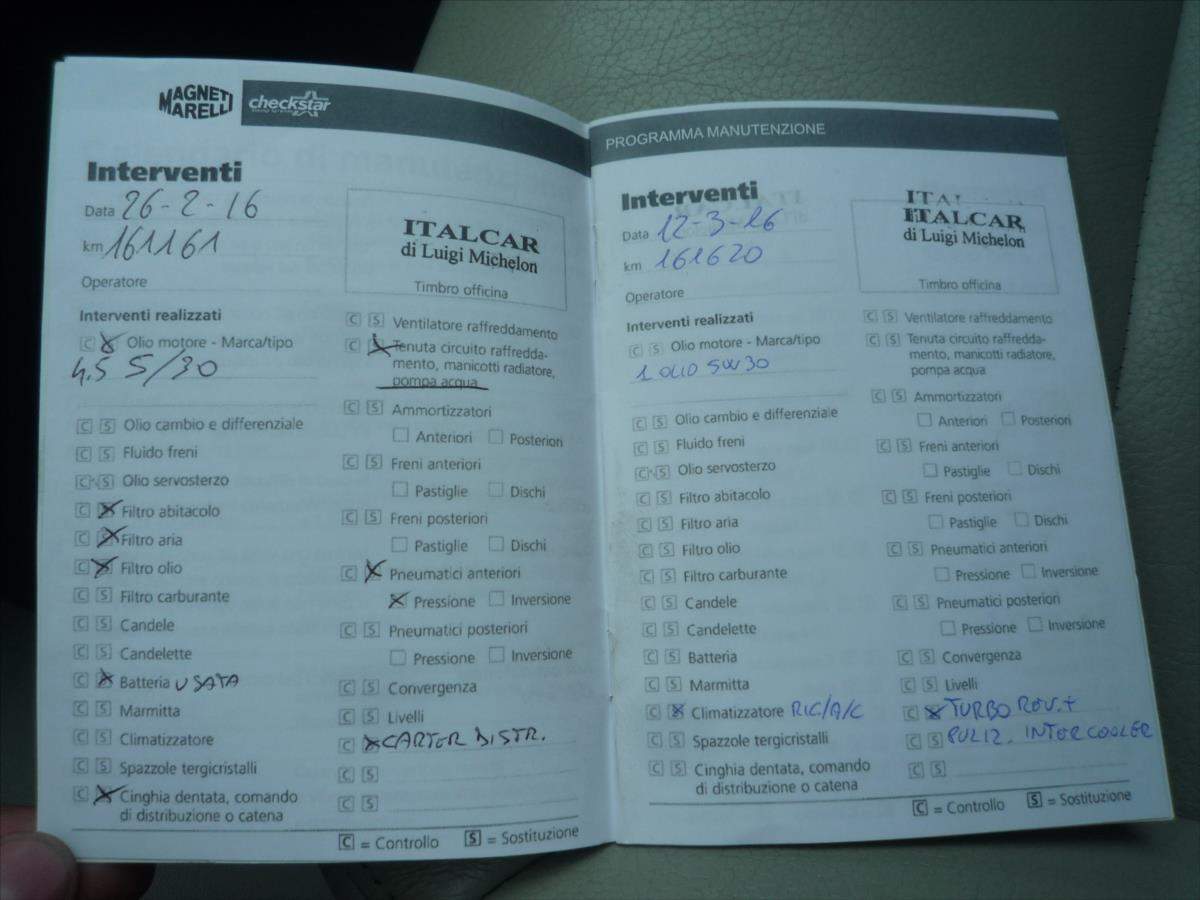 MAGNETI
MARELLI
checkstar
Interventi
Data 26-2-16
km 161161
Operatore
ITALCAR
di Luigi Michelon
Timbro officina
Interventi realizzati
C S Olio motore - Marca/tipo
4,5 5/30
C S Olio cambio e differenziale
C S Fluido freni
C S Olio servosterzo
C S Filtro abitacolo
C S Filtro aria
C S Filtro olio
C S Filtro carburante
C S Candele
C S Candelette
C S Batteria USATA
C S Marmitta
C S Climatizzatore
C S Spazzole tergicristalli
C S Cinghia dentata, comando
di distribuzione o catena
C S Ventilatore raffreddamento
C S Tenuta circuito raffredda-
mento, manicotti radiatore,
pompa acqua
C S Ammortizzatori
Anteriori Posteriori
C S Freni anteriori
Pastiglie Dischi
C S Freni posteriori
Pastiglie Dischi
C S Pneumatici anteriori
Pressione Inversione
C S Pneumatici posteriori
Pressione Inversione
C S Convergenza
C S Livelli
C S CARTER DISTR.
C S
C S
C = Controllo S = Sostituzione
PROGRAMMA MANUTENZIONE
Interventi
Data 12-3-16
km 161620
Operatore
ITALCAR
ITALCAR
di Luigi Michelon
Timbro officina
Interventi realizzati
C S Olio motore - Marca/tipo
1 OLIO 5W30
C S Olio cambio e differenziale
C S Fluido freni
C S Olio servosterzo
C S Filtro abitacolo
C S Filtro aria
C S Filtro olio
C S Filtro carburante
C S Candele
C S Candelette
C S Batteria
C S Marmitta
C S Climatizzatore RIC/A/C
C S Spazzole tergicristalli
C S Cinghia dentata, comando
di distribuzione o catena
C S Ventilatore raffreddamento
C S Tenuta circuito raffredda-
mento, manicotti radiatore,
pompa acqua
C S Ammortizzatori
Anteriori Posteriori
C S Freni anteriori
Pastiglie Dischi
C S Freni posteriori
Pastiglie Dischi
C S Pneumatici anteriori
Pressione Inversione
C S Pneumatici posteriori
Pressione Inversione
C S Convergenza
C S Livelli
C S TURBO REV. +
C S PULIZ. INTERCOOLER
C S
C = Controllo S = Sostituzione